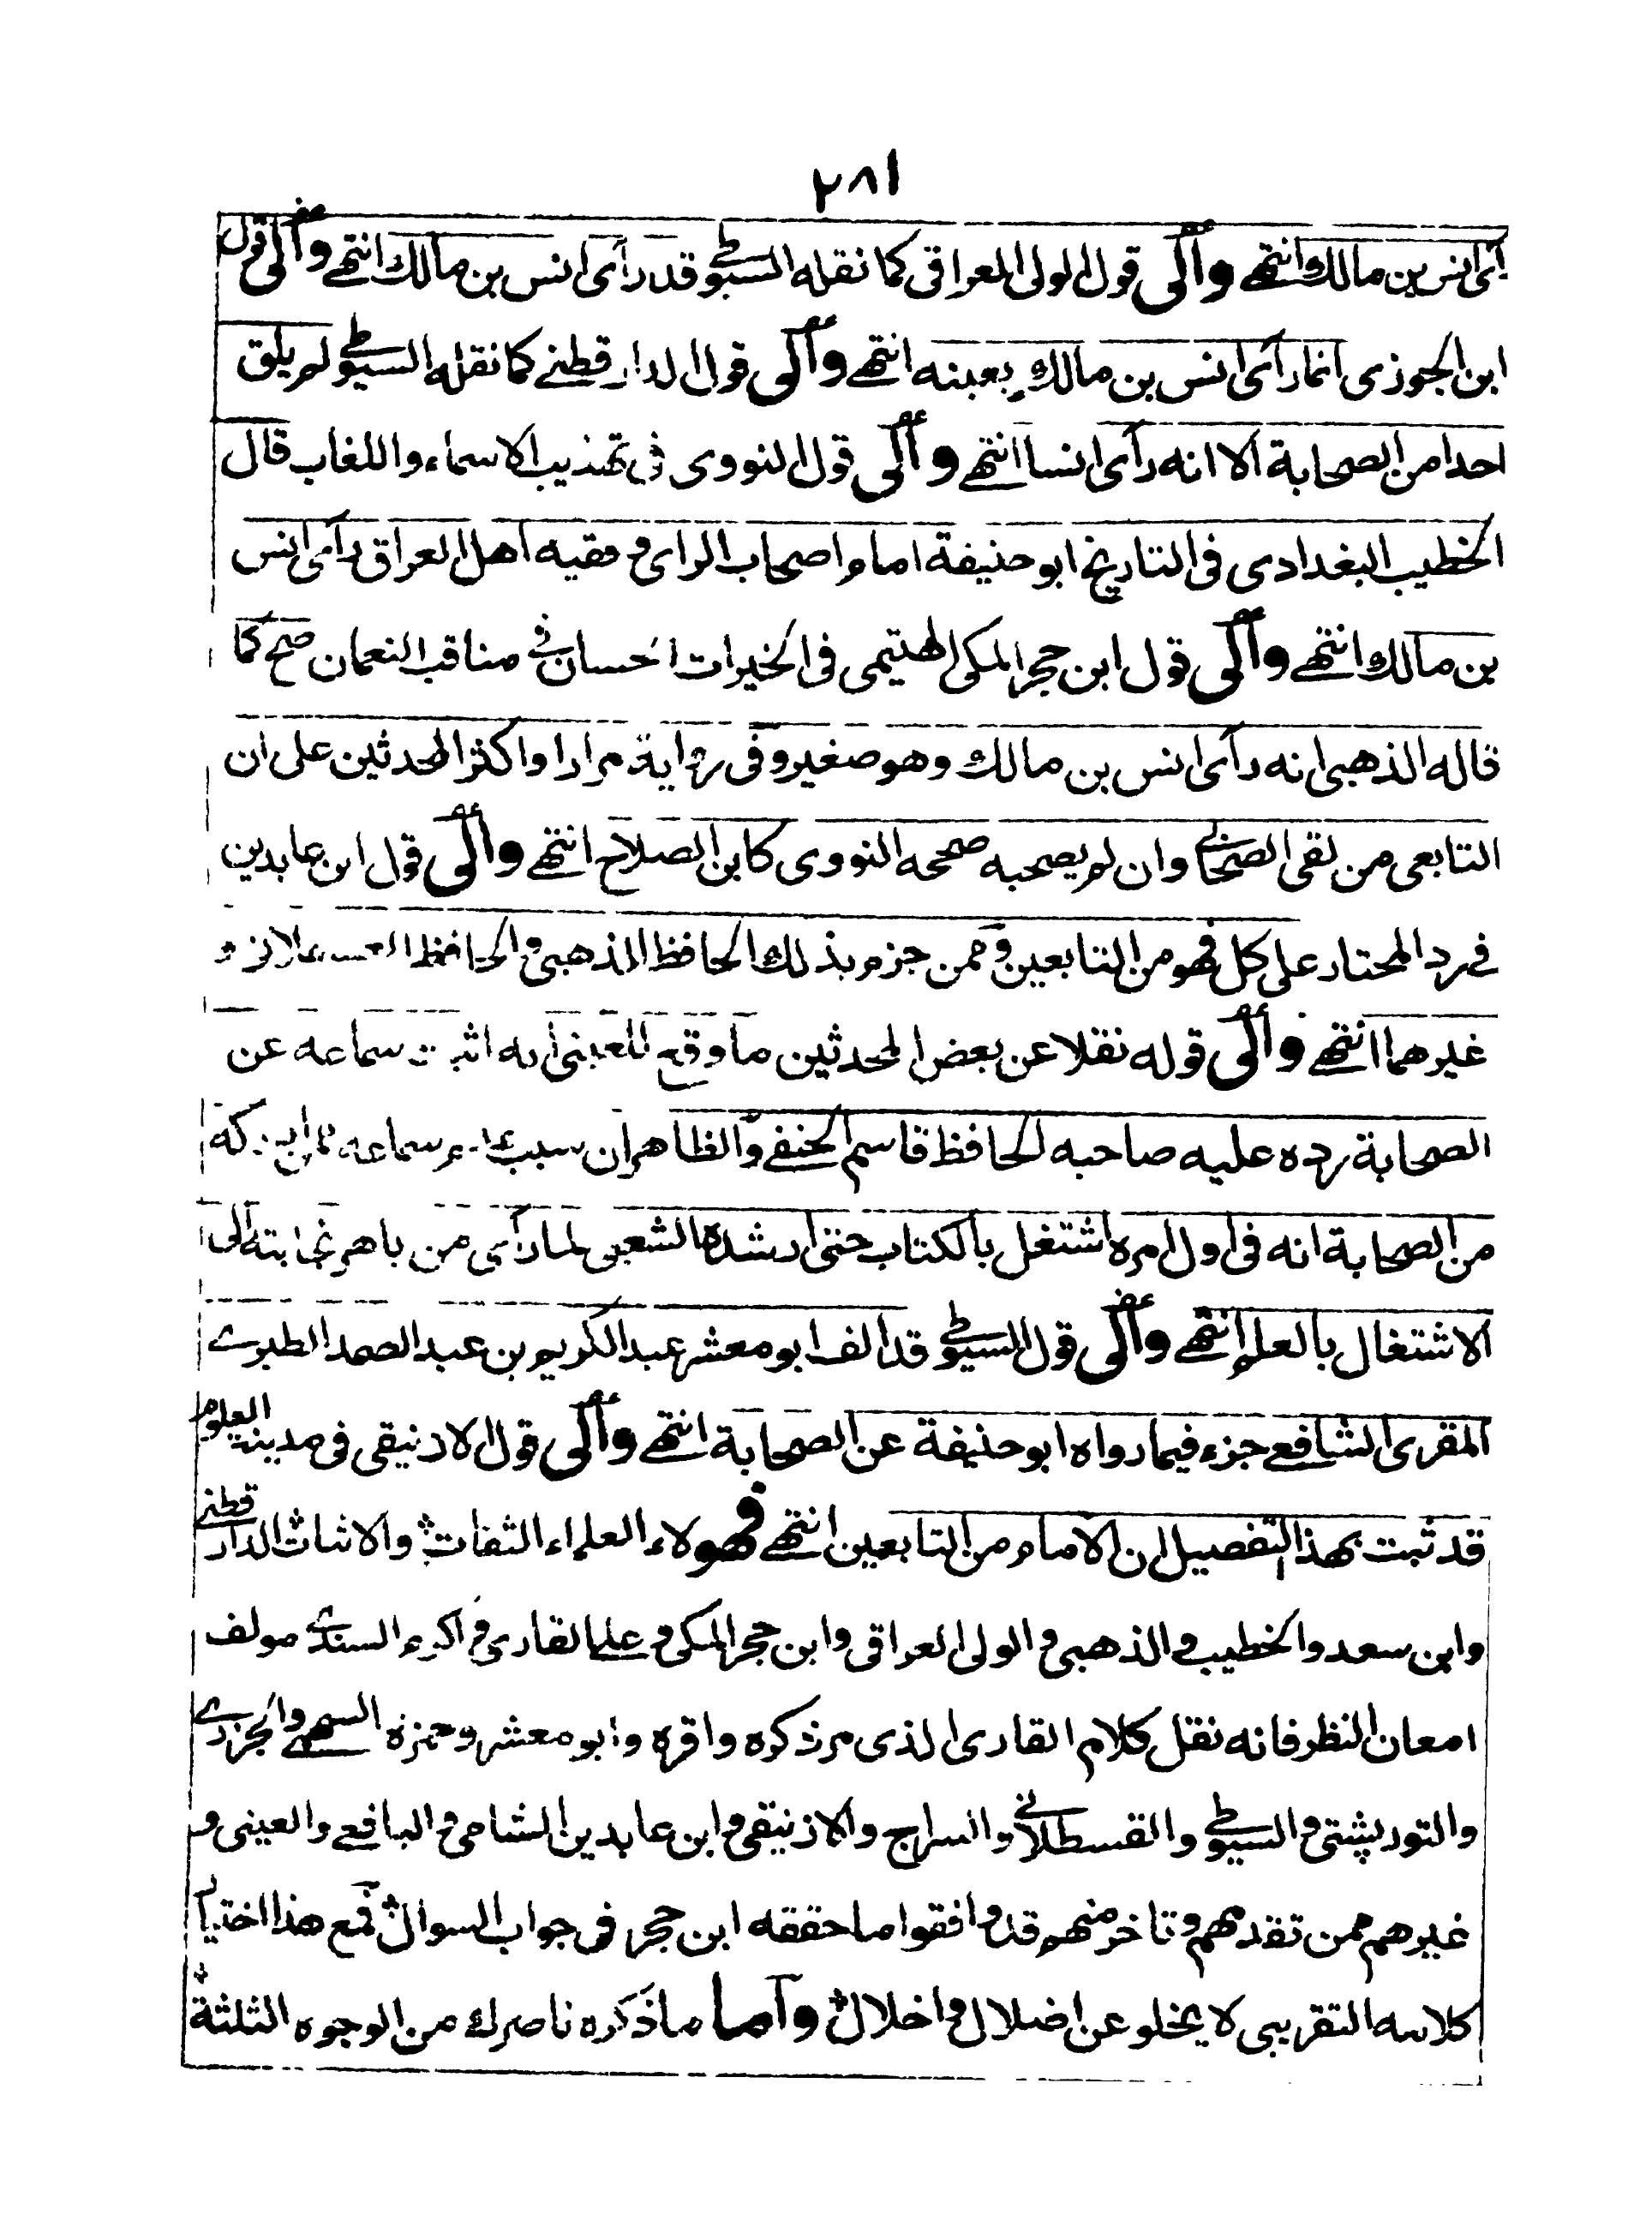 ٢٨١
رأى انس بن مالك انتهے وآلى قول الولى العراقى كما نقله السيوطے قد رأى انس بن مالك انتهے وآلى قول
ابن الجوزى انما رأى انس بن مالك بعينه انتهے وآلى قول الدارقطنے كما نقله السيوطے لم يلق
احدا من الصحابة الا انه رأى انسا انتهے وآلى قول النووى فى تهذيب الاسماء واللغات قال
الخطيب البغدادى فى التاريخ ابو حنيفة امام اصحاب الراى وفقيه اهل العراق رأى انس
بن مالك انتهے وآلى قول ابن حجر المكى الهيتمى فى الخيرات الحسان فى مناقب النعمان صح كما
قاله الذهبى انه رأى انس بن مالك وهو صغير وفى رواية مرارا واكثر المحدثين على ان
التابعى من لقى الصحابے وان لم يصحبه صححه النووى كابن الصلاح انتهے وآلى قول ابن عابدين
فے رد المحتار على كل فهو من التابعين وممن جزم بذلك الحافظ الذهبى والحافظ العسقلانى و
غيرهما انتهے وآلى قوله نقلا عن بعض المحدثين ما وقع للعينى انه اثبت سماعه عن
الصحابة رده عليه صاحبه الحافظ قاسم الحنفے والظاهر ان سبب عدم سماعه ممن ادركه
من الصحابة انه فى اول امره اشتغل بالكتاب حتى ارشده الشعبى لما رأى من باهر نجابته الى
الاشتغال بالعلم انتهے وآلى قول السيوطے قد الف ابو معشر عبد الكريم بن عبد الصمد الطبرے
المقرى الشافعے جزء فيما رواه ابو حنيفة عن الصحابة انتهے وآلى قول الازنيقى فى مدينة العلوم
قد ثبت بهذا التفصيل ان الامام من التابعين انتهے فهولاء العلماء الثقات والاثبات الدارقطنے
وابن سعد والخطيب والذهبى والولى العراقى وابن حجر المكى وعلى القارى واكرم السندے مولف
امعان النظر فانه نقل كلام القارى الذى مر ذكره واقره وابو معشر وحمزة السهمے والجزرے
والتوربشتى والسيوطے والقسطلانے والسراج والازنيقى وابن عابدين الشامى واليافعے والعينى و
غيرهم ممن تقدمهم وتاخر منهم قد وافقوا ما حققه ابن حجر فى جواب السوال فمع هذا اختيار
كلامه التقريبى لا يخلو عن اضلال واخلال وآما ما ذكره ناصرك من الوجوه الثلثة